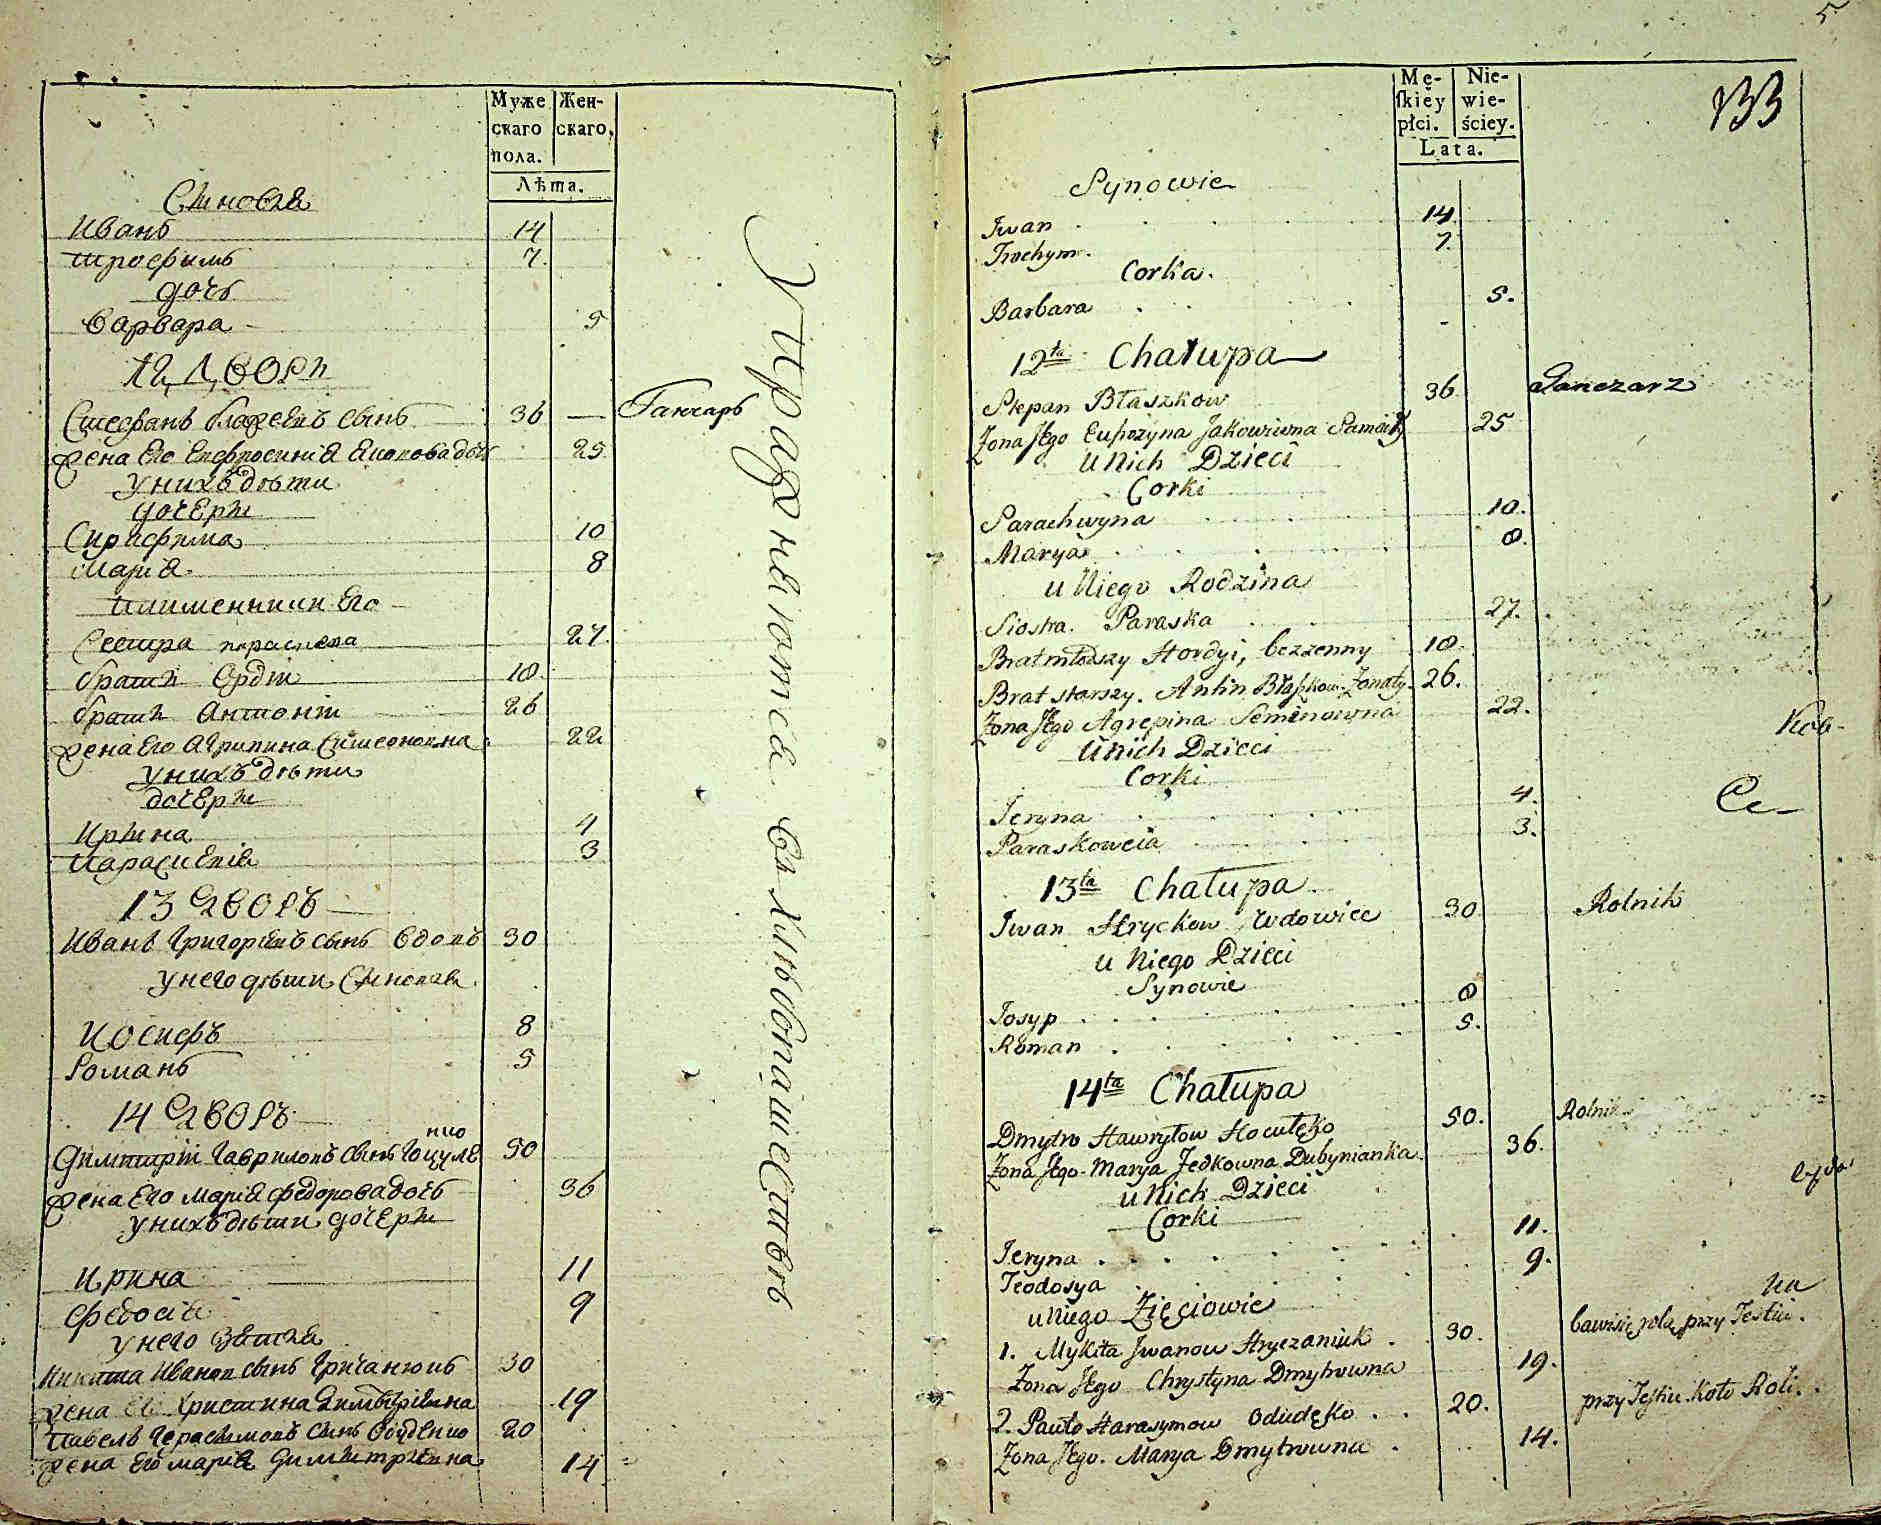 Муже
скаго
пола.
Жен-
скаго.
Лѣта.
Сынове
Иванъ 14
Трофымъ 7.
дочь
Варвара 5
12 Дворъ
Стефанъ сынъ 36 — Ганчаръ
Жена Его Евфросиния Якововадочь 25
у нихъ дѣти
дочеры
10
Мария 8
Племенники Его
Сестра 27.
братъ 18
братъ Антоній 26
жена Его Агрипина 22
у нихъ дѣти
дочеры
Ирына 4
Параскевія 3
13 Дворъ
Иванъ Григориевъ сынъ вдовъ 30
у него дѣти Сынове
Иосифъ 8
Романъ 5
14 Дворъ
Димитрій Гавриловъ сынъ Гоцулѣ
50
жена Его Марія Федоровадочь 36
у нихъ дѣти дочеры
Ирина 11
Федосія 9
у него Зятья
Никита Иванов сынъ Гричанюкъ 30
жена Ег Христина Димитриевна 19
Павелъ Герасимовъ сынъ 20
жена Его Марія Димитриевна 14
Упражняются въ хлѣбопашествѣ
5
Mę-
ſkiëy
płci.
Nie-
wie-
ściey.
Lata.
133
Synowie
Jwan 14
Trochym. 7.
Corka.
Barbara 5.
12ta Chałupa
Stepan Błaszkow 36. Ganczarz
Żona Jego Eufrozyna Jakowiwna 25
u Nich Dzieci
Corki
Parachwyna 10.
Marya 8.
u Niego Rodzina
Siostra. Paraska 27.
Brat młodszy Hordyi, bezżenny 18.
Brat starszy. Antin Błaszkow. Żonaty. 26.
Żona Jego Agrepina Semenowna 22.
u Nich Dzieci
Corki
Jeryna 4.
Paraskoweia 3.
13ta Chałupa
Jwan Hryckow, Wdowiec 30 Rolnik
u Niego Dzieci
Synowie
Josyp 8
Roman 5.
14ta Chałupa
Dmytro Hawryłow Hocułęko 50. Rolnik
Żona Jego. Marya Fedkowna Dubynianka. 36.
u Nich Dzieci
Corki
Jeryna 11.
Teodosya 9.
u Niego Zięciowie
1. Mykita Jwanow Hryczaniuk. 30. bawisię rolą przy Testiu.
Żona Jego Chrystyna Dmytrowna 19.
2. Pawło Harasymow Odudęko 20. przy Testiu Koło Roli.
Żona Jego. Marya Dmytrowna 14.